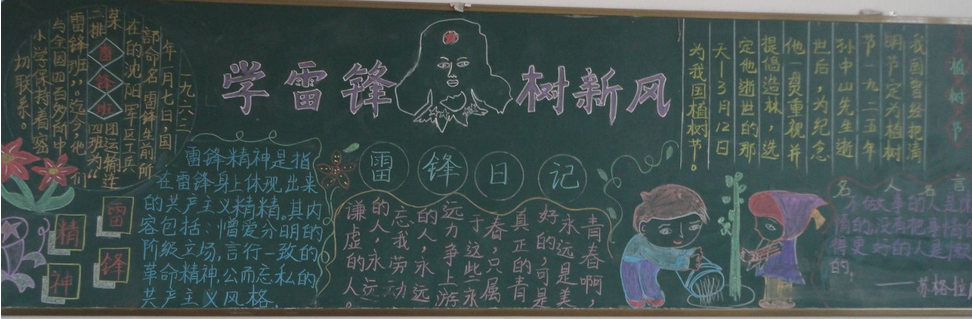 学雷锋 树新风
一九六三
年一月七日,国
部命名 雷锋生前所
在的沈阳军区工兵
某团运输连
二排四班为“
雷锋班”。迄今,他们
与全国四百多所中
小学保持着紧
切联系。
雷锋班
雷锋
精神
雷锋精神是指
在雷锋身上体现出来
的共产主义精精。其内
容包括:憎爱分明的
阶级立场,言行一致的
革命精神,公而忘私的
共产主义风格。
雷锋日记
青春啊,
永远是美
好的,可是
真正的青
春,只属
于这些永
远力争上游
的人,永远
忘我劳动
的人,永远
谦虚的人。
植树节
我国曾经把清
明节定为植树
节。一九二五年
孙中山先生逝
世后,为纪念
他一贯重视并
提倡造林,选
定他逝世的那
天—3月12日
为我国植树节。
名人名言
——苏格拉